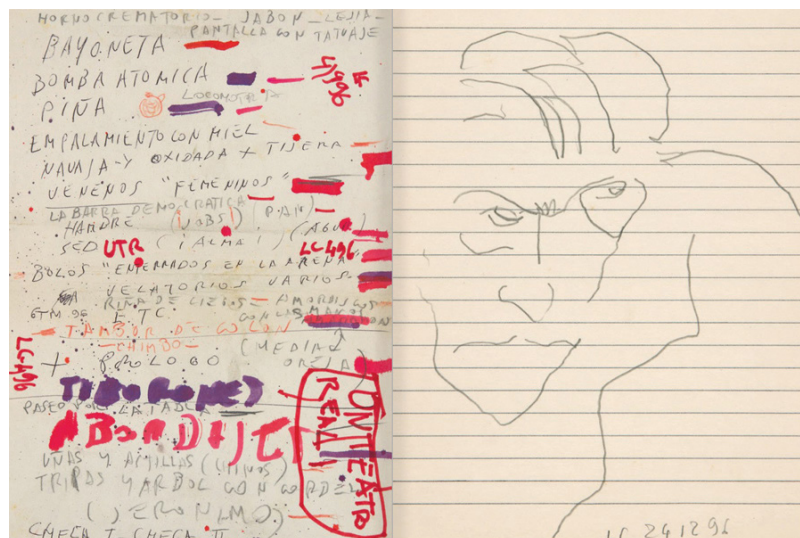 HORNO CREMATORIO - JABON - LEJIA -
PANTALLA CON TATUAJE
BAYONETA
BOMBA ATOMICA
4/996
PIÑA
EMPALAMIENTO CON MIEL
NAVAJA-Y OXIDADA + TIJERA
VENENOS "FEMENINOS"
LA BARRA DEMOCRATICA
HAMBRE (JOBS) (PAN)
SED UTR (¡ALMA!) (AGUA) LC496
BOLOS "ENTERRADOS EN LA ARENA"
VELATORIOS VARIOS
RIÑA DE CIEGOS - AMORDISCOS
ETC.
TAMBOR DE COLON
-CHIMBO- (MEDIA
OREJA)
LC-496
+ PROLOGO
PASEO POR LA TABLA
ONTTEATRO
REAL
UÑAS Y ANILLAS (CHINOS)
TRIPAS Y ARBOL CON CORDEL
(JERONIMO)
CHECA I CHECA II
LC 241296